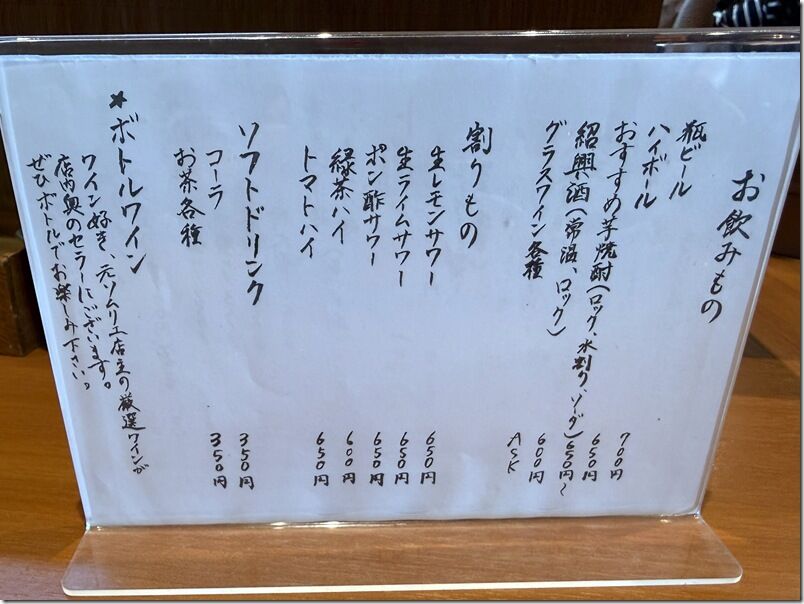 お飲みもの
瓶ビール 700円
ハイボール 650円
おすすめ芋焼酎(ロック、水割り、ソーダ) 650円~
紹興酒(常温、ロック) 600円
グラスワイン各種 ASK
割りもの
生レモンサワー 650円
生ライムサワー 650円
ポン酢サワー 650円
緑茶ハイ 600円
トマトハイ 650円
ソフトドリンク
コーラ 350円
お茶各種 350円
*ボトルワイン
ワイン好き、元ソムリエ店主の厳選ワインが
店内奥のセラーにございます。
ぜひボトルでお楽しみ下さい。